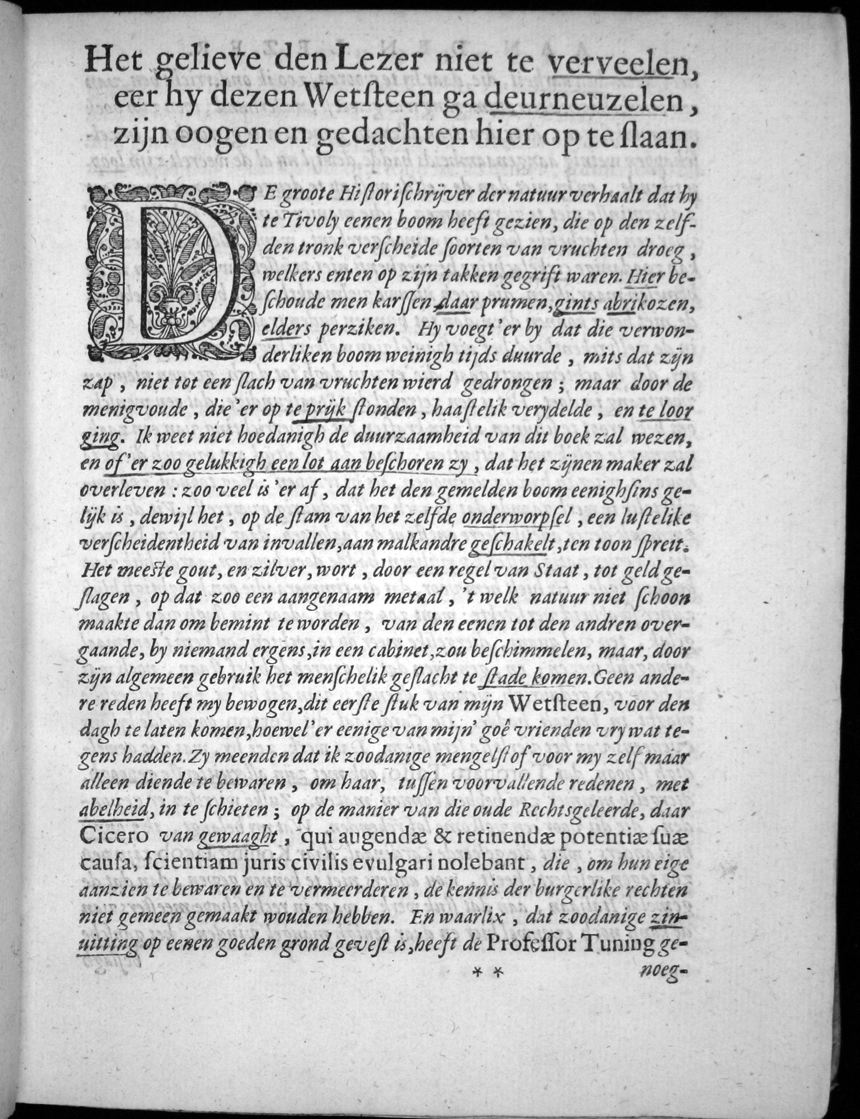 Het gelieve den Lezer niet te verveelen,
eer hy dezen Wetſteen ga deurneuzelen,
zijn oogen en gedachten hier op te ſlaan.
DE groote Hiſtoriſchrijver der natuur verhaalt dat hy
te Tivoly eenen boom heeft gezien, die op den zelf-
den tronk verſcheide ſoorten van vruchten droeg,
welkers enten op zijn takken gegrift waren. Hier be-
ſchoude men karſſen daar prumen, gints abrikozen,
elders perziken. Hy voegt'er by dat die verwon-
derliken boom weinigh tijds duurde, mits dat zijn
zap, niet tot een ſlach van vruchten wierd gedrongen; maar door de
menigvoude, die'er op te prijk ſtonden, haaſtelik verydelde, en te loor
ging. Ik weet niet hoedanigh de duurzaamheid van dit boek zal wezen,
en of'er zoo gelukkigh een lot aan beſchoren zy, dat het zijnen maker zal
overleven: zoo veel is'er af, dat het den gemelden boom eenighſins ge-
lijk is, dewijl het, op de ſtam van het zelfde onderworpſel, een luſtelike
verſcheidentheid van invallen, aan malkandre geſchakelt, ten toon ſpreit.
Het meeſte gout, en zilver, wort, door een regel van Staat, tot geld ge-
ſlagen, op dat zoo een aangenaam metaal, 't welk natuur niet ſchoon
maakte dan om bemint te worden, van den eenen tot den andren over-
gaande, by niemand ergens, in een cabinet, zou beſchimmelen, maar, door
zijn algemeen gebruik het menſchelik geſlacht te ſtade komen. Geen ande-
re reden heeft my bewogen, dit eerſte ſtuk van mijn Wetſteen, voor den
dagh te laten komen, hoewel'er eenige van mijn' goê vrienden vry wat te-
gens hadden. Zy meenden dat ik zoodanige mengelſtof voor my zelf maar
alleen diende te bewaren, om haar, tuſſen voorvallende redenen, met
abelheid, in te ſchieten; op de manier van die oude Rechtsgeleerde, daar
Cicero van gewaaght, qui augendæ & retinendæ potentiæ ſuæ
cauſa, ſcientiam juris civilis evulgari nolebant, die, om hun eige
aanzien te bewaren en te vermeerderen, de kennis der burgerlike rechten
niet gemeen gemaakt wouden hebben. En waarlix, dat zoodanige zin-
uitting op eenen goeden grond geveſt is, heeft de Profeſſor Tuning ge-
* * noeg-